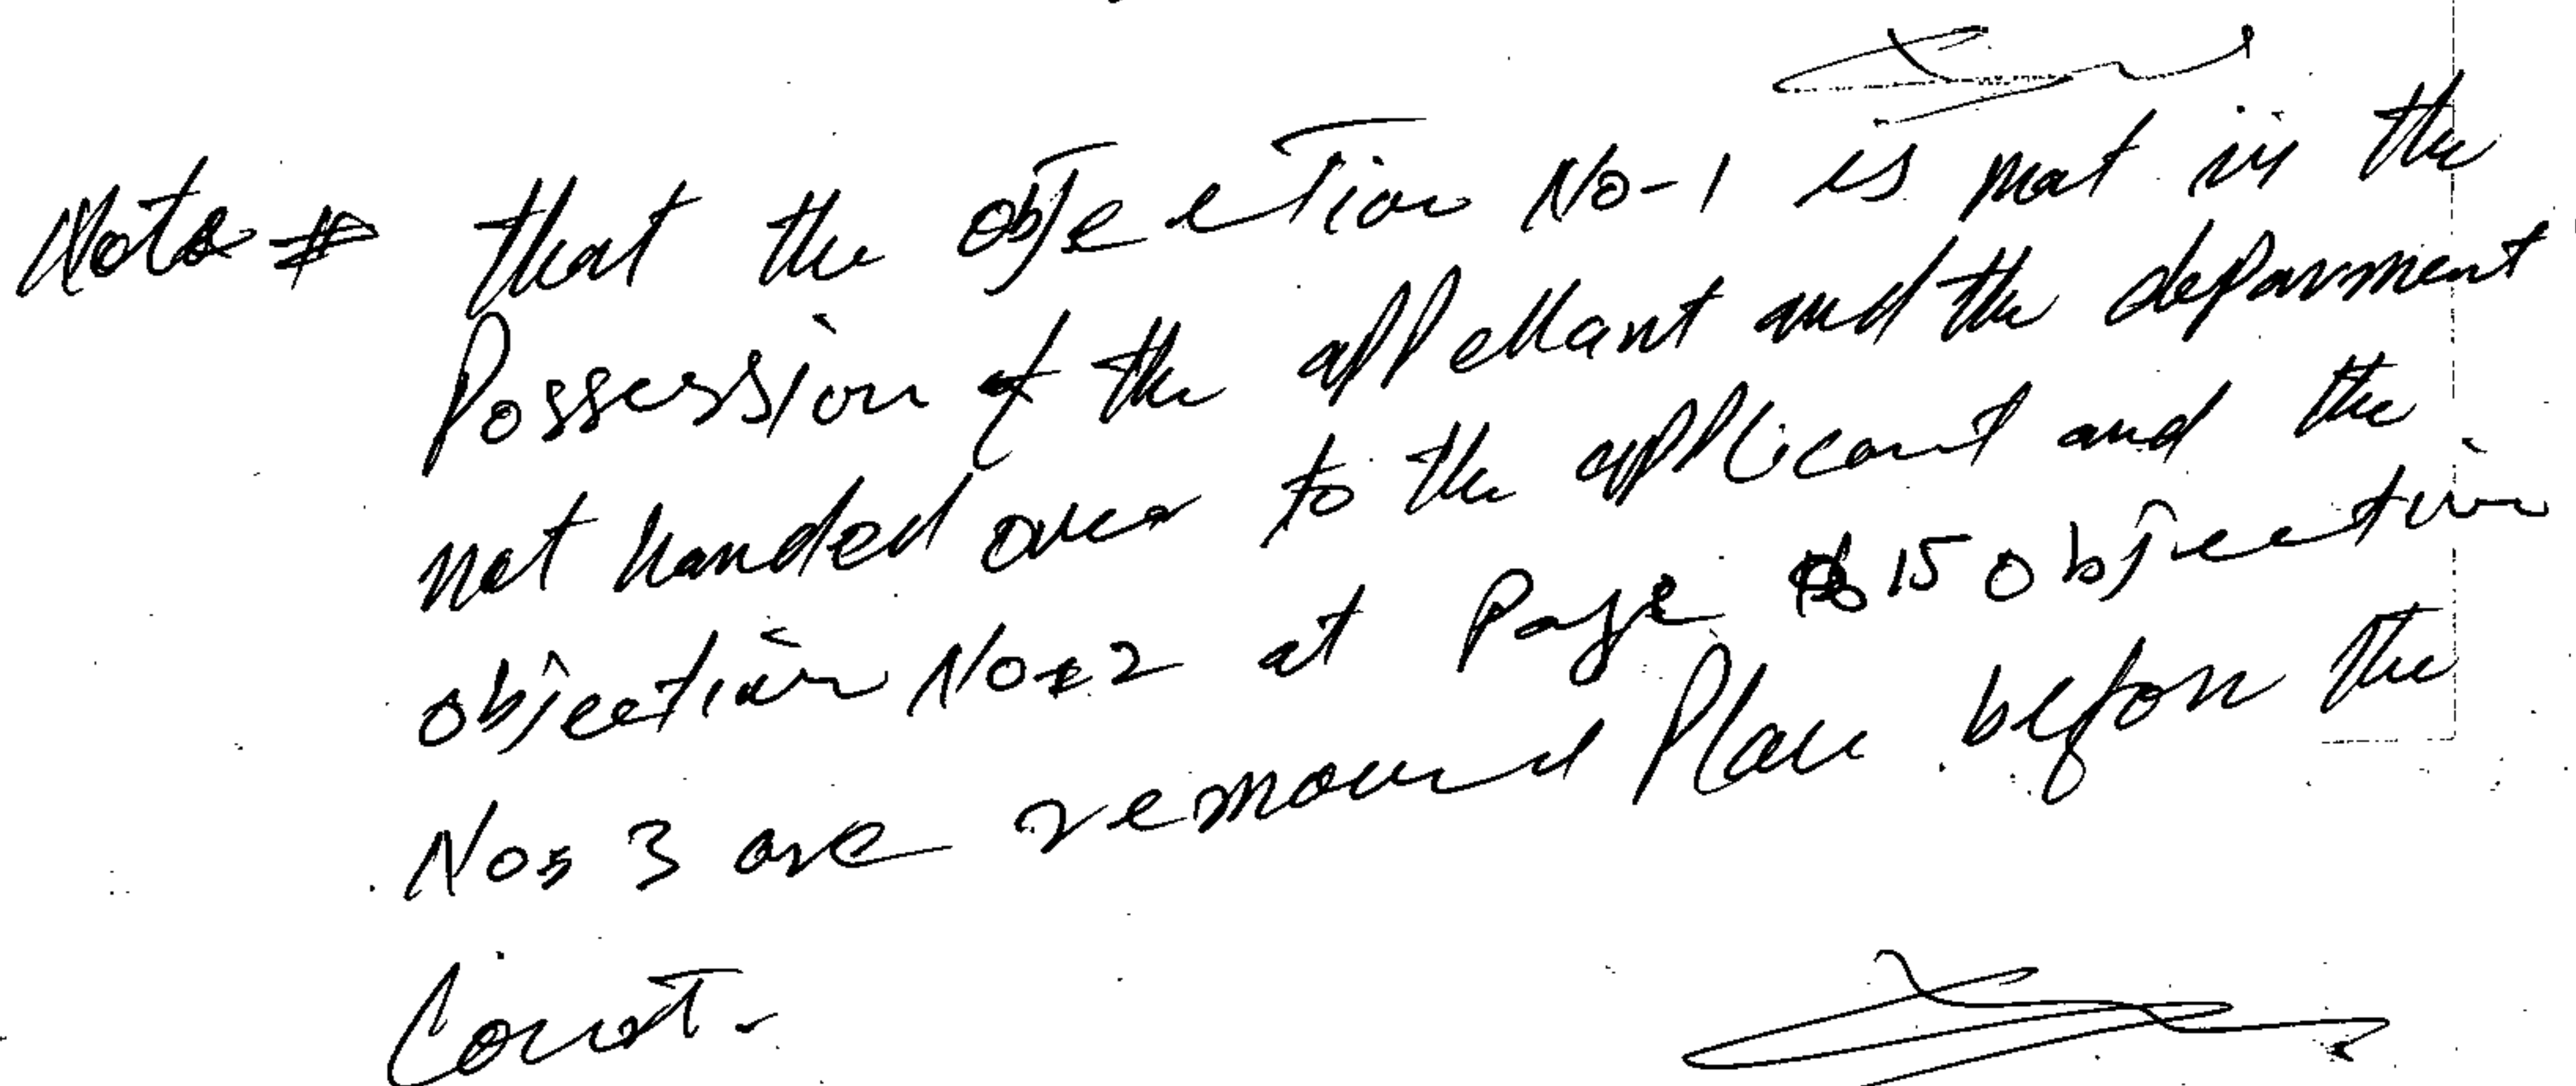 Note # that the objection No-1 is not in the
Possession of the appellant and the deparment
not handed over to the applicant and the
objection No=2 at Page 15 objection
No= 3 are removed Place before the
Court-